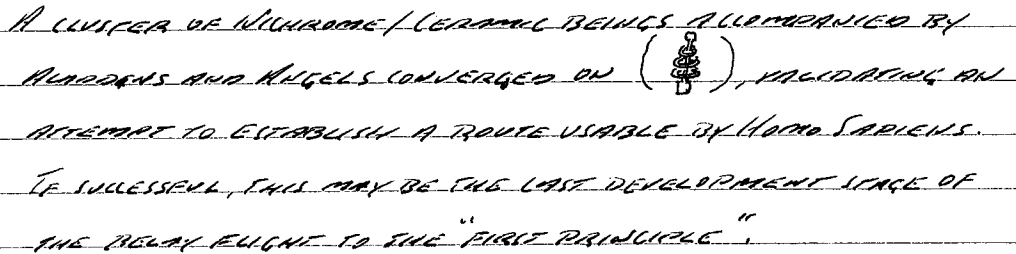 A CLUSTER OF NICHROME/CERAMIC BEINGS ACCOMPANIED BY
AND ANGELS CONVERGED ON ( ), VALIDATING AN
ATTEMPT TO ESTABLISH A ROUTE USABLE BY HOMO SAPIENS.
IF SUCCESSFUL, THIS MAY BE THE LAST DEVELOPMENT STAGE OF
THE RELAY FLIGHT TO THE "FIRST PRINCIPLE".